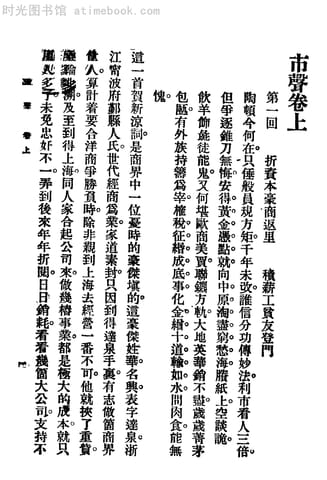 时光图书馆 atimebook.com
市聲卷上
第一回 折資本豪商返里 積薪工貧友登門
陶頓今何在。只倕般員規方矩。千年未改。誰信分功傳妙法。利市看人三倍。
但爭逐錐刀無悔。安得黃金憑點就。向中原淘盡窮愁海。賸紙上。空談詭。
飲羊飾彘徒能鬼。又何堪歐商美賈。聯鑣方軌。大地英華銷不盡。歲歲菁茅
包匭。有外族持籌爲宰。榷稅征緡成底事。化金繒十道輸如水。問肉食。能無
愧。
這一首賀新涼詞。是商界中一位憂時的豪傑填的。這豪傑姓華名興。表字達泉。浙
江甯波府鄞縣人氏。世代經商爲業。家道素封。只因到得達泉手裏。有志做箇商界
偉人。算計着要合洋商爭勝負時。除非親到上海去經營一番不可。他就挾了重貲。
及至到得上海。同人家合起公司來。做幾樁事業。都是極大的成本。就只
未免忠奸不一。弄到後來。年年折閱。日日銷耗。看看幾箇大公司。支持不
市聲 卷上 一